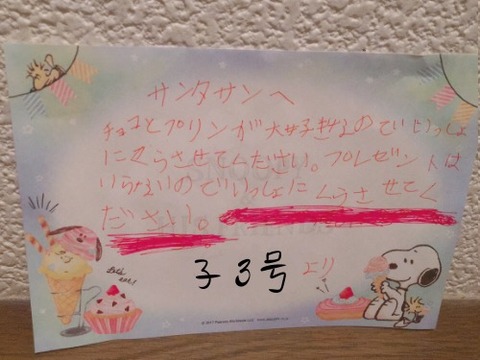 サンタサンへ
チョコとプリンが大好きなのでいっしょ
にくらさせてください。プレゼントは
いらないのでいっしょにくらさせてく
ださい。
子3号 より
© 2017 Peanuts Worldwide LLC